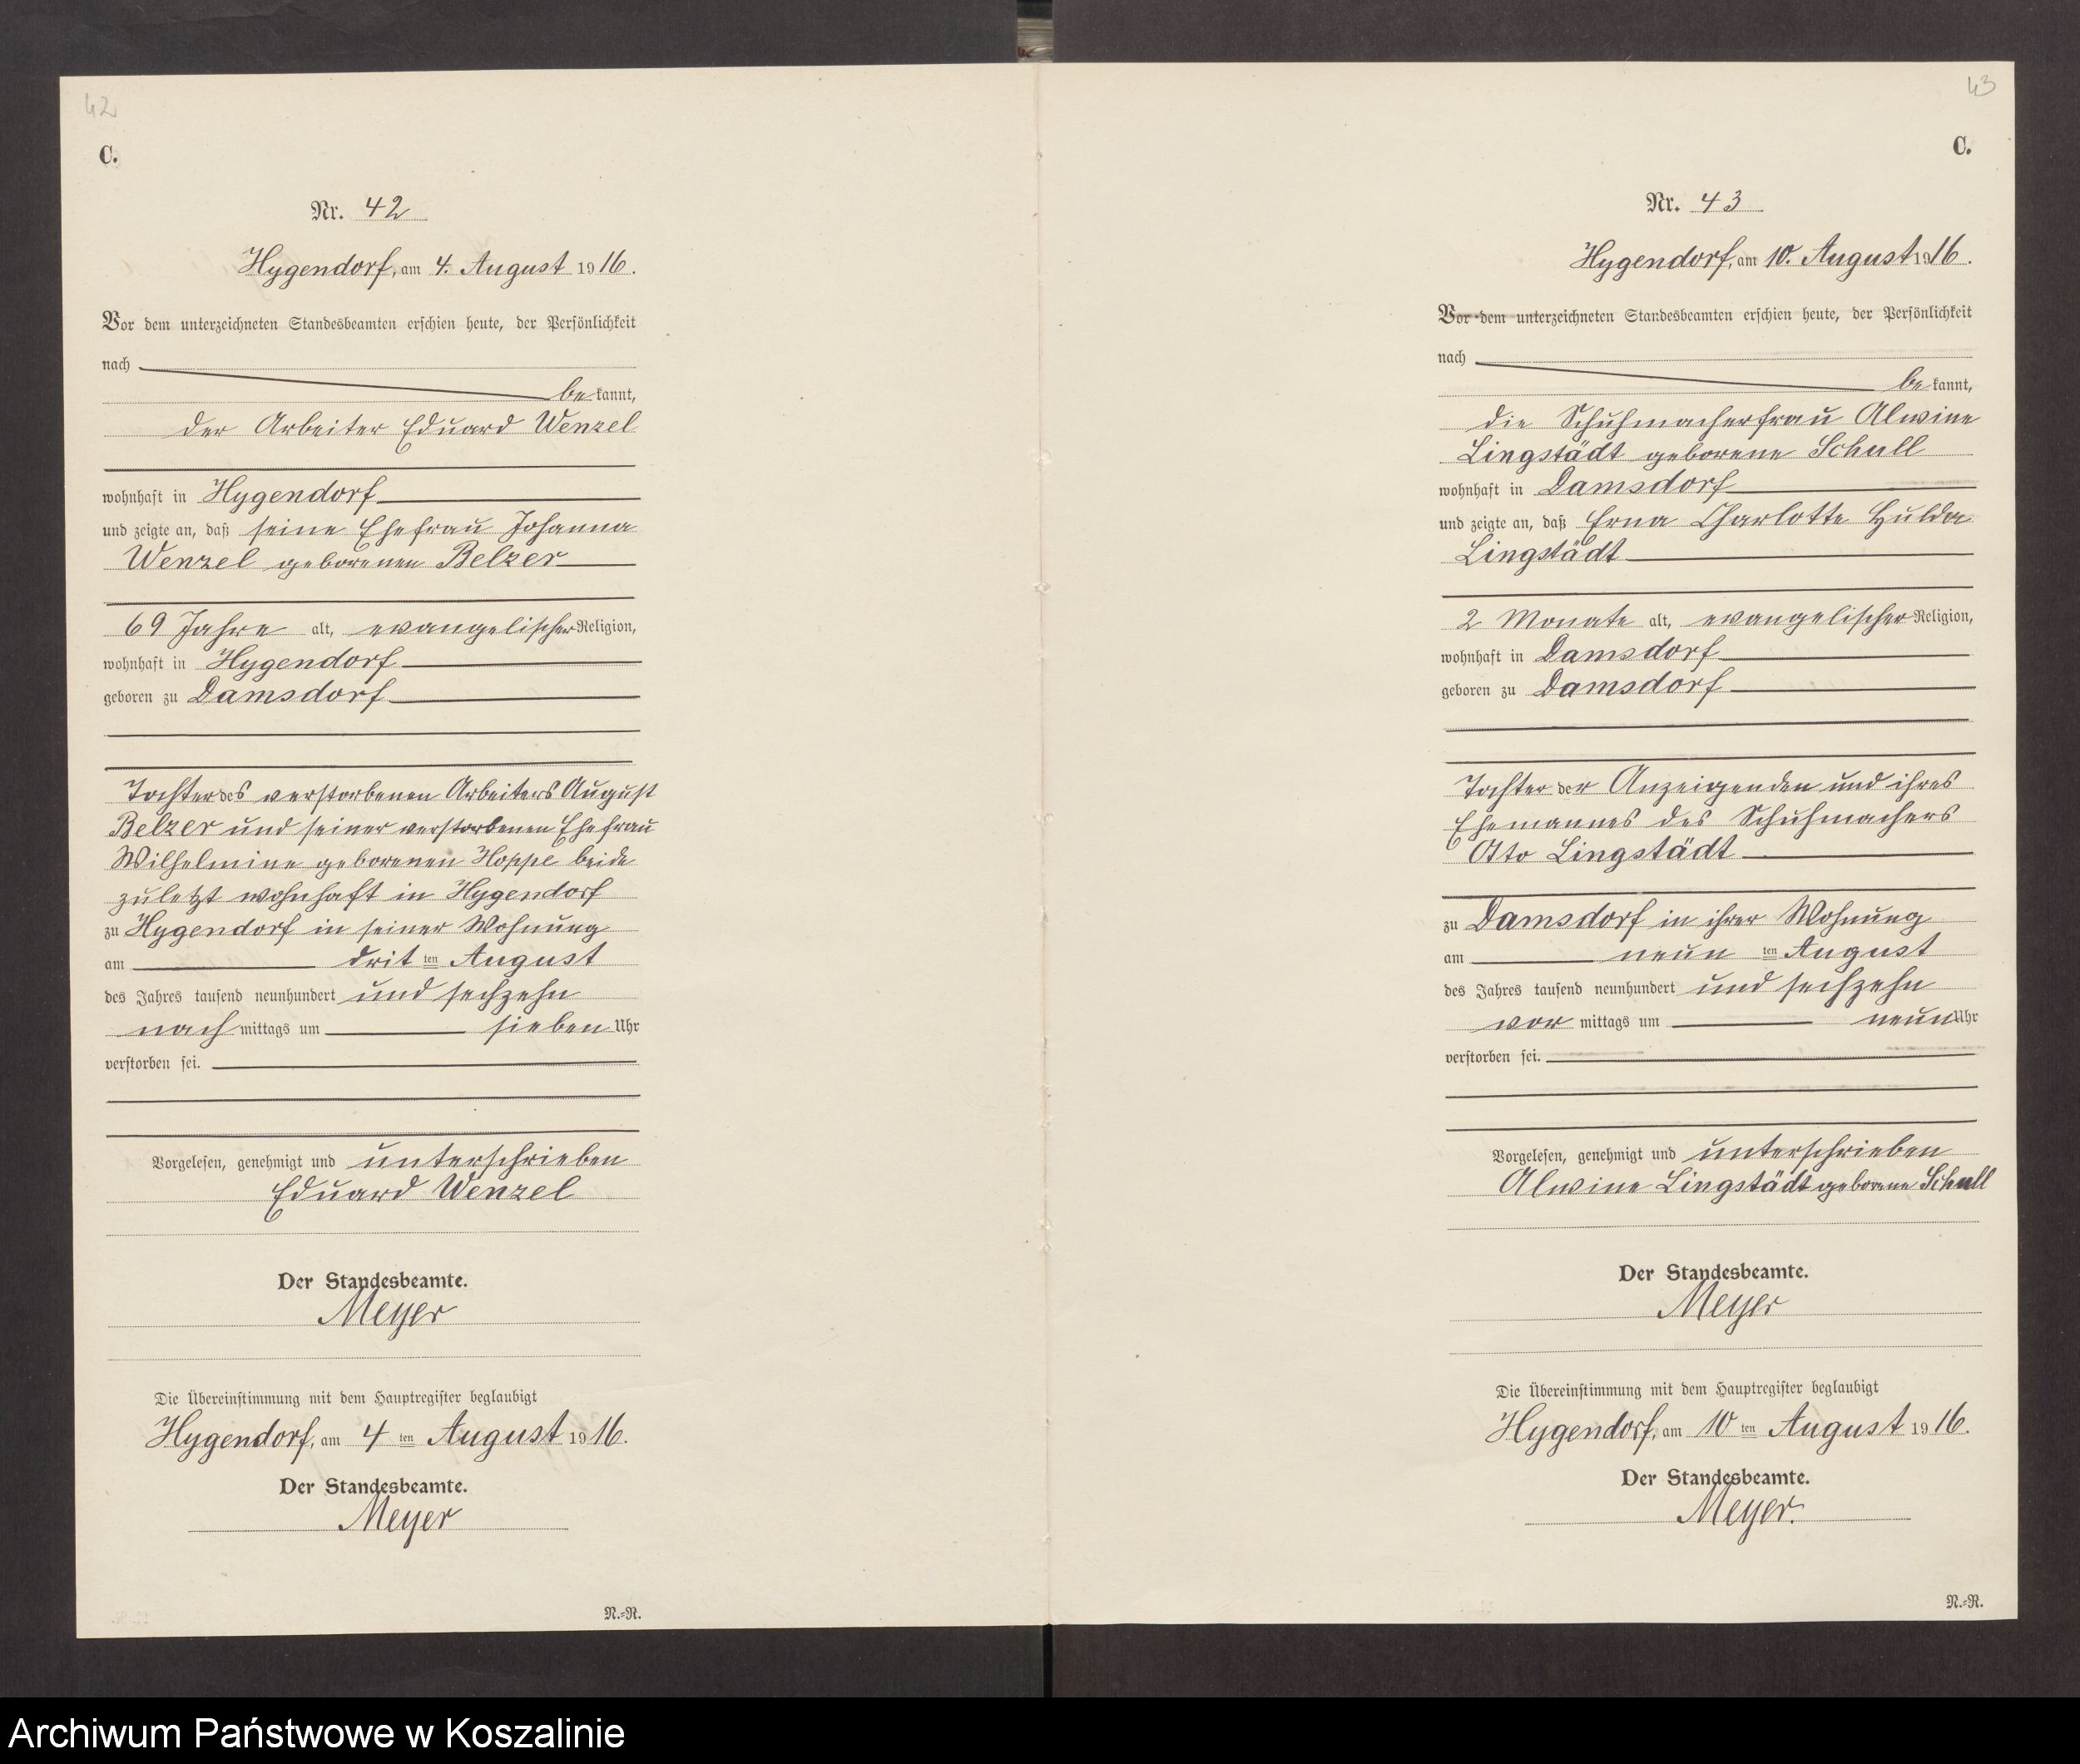 42
C.
Nr. 42
Hygendorf, am 4. August 1916.
Vor dem unterzeichneten Standesbeamten erschien heute, der Persönlichkeit
nach
be kannt,
der Arbeiter Eduard Wenzel
wohnhaft in Hygendorf
und zeigte an, daß seine Ehefrau Johanna
Wenzel geborenen Belzer
69 Jahre alt, evangelischer Religion,
wohnhaft in Hygendorf
geboren zu Damsdorf
Tochter des verstorbenen Arbeiters August
Belzer und seiner verstorbenen Ehefrau
Wilhelmine geborenen Hoppe beide
zuletzt wohnhaft in Hygendorf
zu Hygendorf in seiner Wohnung
am drit ten August
des Jahres tausend neunhundert und sechzehn
nach mittags um sieben Uhr
verstorben sei.
Vorgelesen, genehmigt und unterschrieben
Eduard Wenzel
Der Standesbeamte.
Meyer
Die Übereinstimmung mit dem Hauptregister beglaubigt
Hygendorf, am 4 ten August 1916.
Der Standesbeamte.
Meyer
N.-R.
43
C.
Nr. 43
Hygendorf, am 10. August 1916.
Vor dem unterzeichneten Standesbeamten erschien heute, der Persönlichkeit
nach
be kannt,
die Schuhmacherfrau Alwine
Lingstädt geborene Schull
wohnhaft in Damsdorf
und zeigte an, daß Erna Charlotte Hulda
Lingstädt
2 Monate alt, evangelischer Religion,
wohnhaft in Damsdorf
geboren zu Damsdorf
Tochter der Anzeigenden und ihres
Ehemannes des Schuhmachers
Otto Lingstädt
zu Damsdorf in ihrer Wohnung
am neun ten August
des Jahres tausend neunhundert und sechzehn
vor mittags um neun Uhr
verstorben sei.
Vorgelesen, genehmigt und unterschrieben
Alwine Lingstädt geborene Schull
Der Standesbeamte.
Meyer
Die Übereinstimmung mit dem Hauptregister beglaubigt
Hygendorf, am 10 ten August 1916.
Der Standesbeamte.
Meyer.
N.-R.
Archiwum Państwowe w Koszalinie